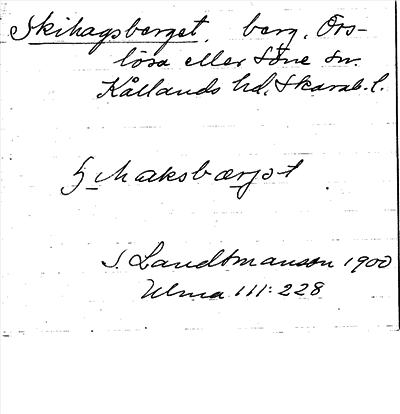 Skihagsberget, berg, Örs-
lösa eller Söne sn.
Kållands hd, Skarab. l.
S. Landtmanson 1900
Ulma 111:228